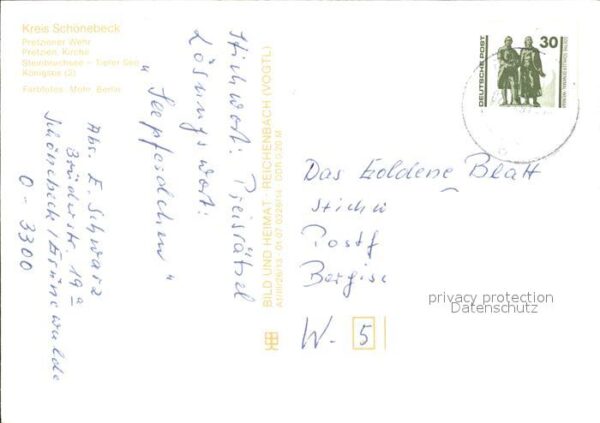 Kreis Schönebeck
Pretziener Wehr
Pretzien, Kirche
Steinbruchsee - Tiefer See
Königsee (2)
Farbfotos: Mohr, Berlin
Stichwort: Preisrätsel
Lösungswort:
"Seepferdchen"
Abs. E. Schwarz
Brüderstr. 19a
Schönebeck/Grünewalde
O-3300
BILD UND HEIMAT · REICHENBACH (VOGTL)
A1/III/26/13 · 01 07 0226/14 · DDR 0,20 M
DEUTSCHE POST
30
Das Goldene Blatt
Stichw
Postf
Bergisc
W- 5
privacy protection
Datenschutz